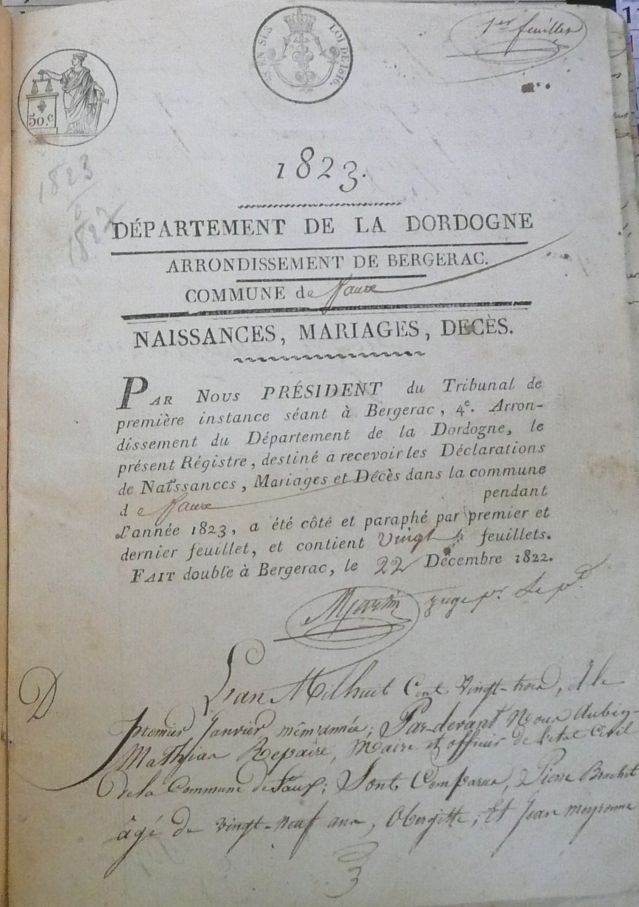 1er feuillet
50.c
EN SUS LOI DE 1816.
1823.
1823
1822
DÉPARTEMENT DE LA DORDOGNE
ARRONDISSEMENT DE BERGERAC.
COMMUNE de Faux
NAISSANCES, MARIAGES, DECÈS.
PAR NOUS PRÉSIDENT du Tribunal de
première instance séant à Bergerac, 4e. Arron-
dissement du Département de la Dordogne, le
présent Régistre, destiné à recevoir les Déclarations
de Naissances, Mariages et Décès dans la commune
de Faux pendant
l'année 1823, a été côté et paraphé par premier et
dernier feuillet, et contient Vingt feuillets.
FAIT double à Bergerac, le 22 Décembre 1822.
juge pr. le pt.
D
L'an Mil huit Cent Vingt-trois, & le
premier Janvier, même année; Par-devant Nous Aubin
Mathieu Repaire, Maire et officier de l'état Civil
de la Commune de Faux; Sont Comparus, Pierre
âgé de vingt-neuf ans, Et Jean
3